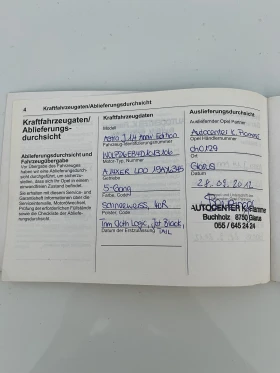 4
Kraftfahrzeugaten/Ablieferungsdurchsicht
Kraftfahrzeugaten/
Ablieferungs-
durchsicht
Ablieferungsdurchsicht und
Fahrzeugübergabe
Vor Übergabe des Fahrzeuges
haben wir alle Ablieferungsdurch-
sicht durchgeführt, um sicherzu-
stellen, dass sich Ihr Opel in einem
einwandfreien Zustand befindet.
Sie erhalten mit diesem Service- und
Garantieheft Informationen über die
Servicintervalle, Motorölwechsel,
Prüfung der erforderlichen Füllstände
sowie die Checkliste der Abliefe-
rungsdurchsicht.
Kraftfahrzeugdaten
Modell
Astra J 1.4 Anniv. Edition
Fahrzeug-Identifizierungsnummer
Motor-Typ, Nummer
A14XER LDD
Getriebe
5-Gang
Farbe, Code
Schneeweiss,
Polster, Code
Trim Cloth Logic, Jet Black,
TAJL
Datum der Erstzulassung
Auslieferungsdurchsicht
Ausliefernder Opel Partner
Autocenter K.
Opel Händlernummer
ch0129
Ort
Glarus
Datum
28.09.2012
AUTOCENTER
Buchholz 8750 Glarus
055 / 645 24 24